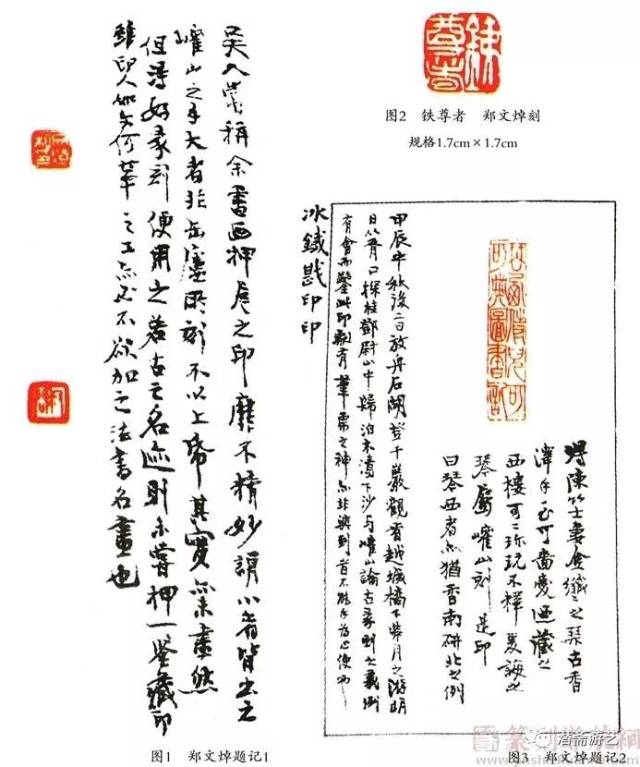 鐵尊者
图2 铁尊者 郑文焯刻
规格1.7cm×1.7cm
吳人嘗稱余書画押尾之印靡不精妙謂小者皆出之
山之手大者非缶廬所刻不以上帋其實亦未盡然
但得好篆刻便用之若古之名迹則未嘗押一鑒藏印
雖印人如文何輩之工亦必不欲加之法書名畫也
图1 郑文焯题记1
冰鐵戡印印
甲辰中秋後二日放舟石湖登千巖觀看越城橋下串月之游明
日入胥口探桂鄧尉山中歸泊木瀆下沙与山論古篆刻之義例
有會而鑿此印頗有筆之神亦非
得陳竺士妻金纖纖之琴古香
澤手可嗇愛藏之
西樓可珍玩不釋
琴屬山刻是印
曰琴西者亦猶香南研北之例
图3 郑文焯题记2
潜斋游艺